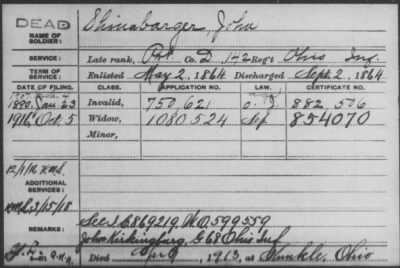 DEAD
NAME OF SOLDIER: Shinabarger, John
SERVICE: Late rank, Pvt Co. D, 142 Reg't Ohio Inf.
TERM OF SERVICE: Enlisted May 2, 1864 Discharged Sept. 2, 1864
DATE OF FILING. CLASS. APPLICATION NO. LAW. CERTIFICATE NO.
1890, Jan. 23 Invalid, 750,621 882,506
1916 Oct. 5 Widow, 1080,524 Sep 854070
Minor,
ADDITIONAL SERVICES:
REMARKS: See I.C. 869219, W.O. 599559
John Kirkingburg, G 68 Ohio Inf
Died Apr 9, 1913, at Kunkle, Ohio